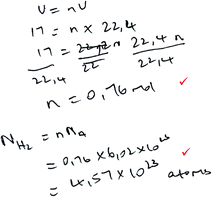 V = nV
17 = n x 22,4
17 = 22,4 n 22,4 n
22,4 22 22,4
n = 0,76 mol ✓
N H2 = nNa
= 0,76 x 6,02 x 10²³ ✓
= 4,57 x 10²³ atoms